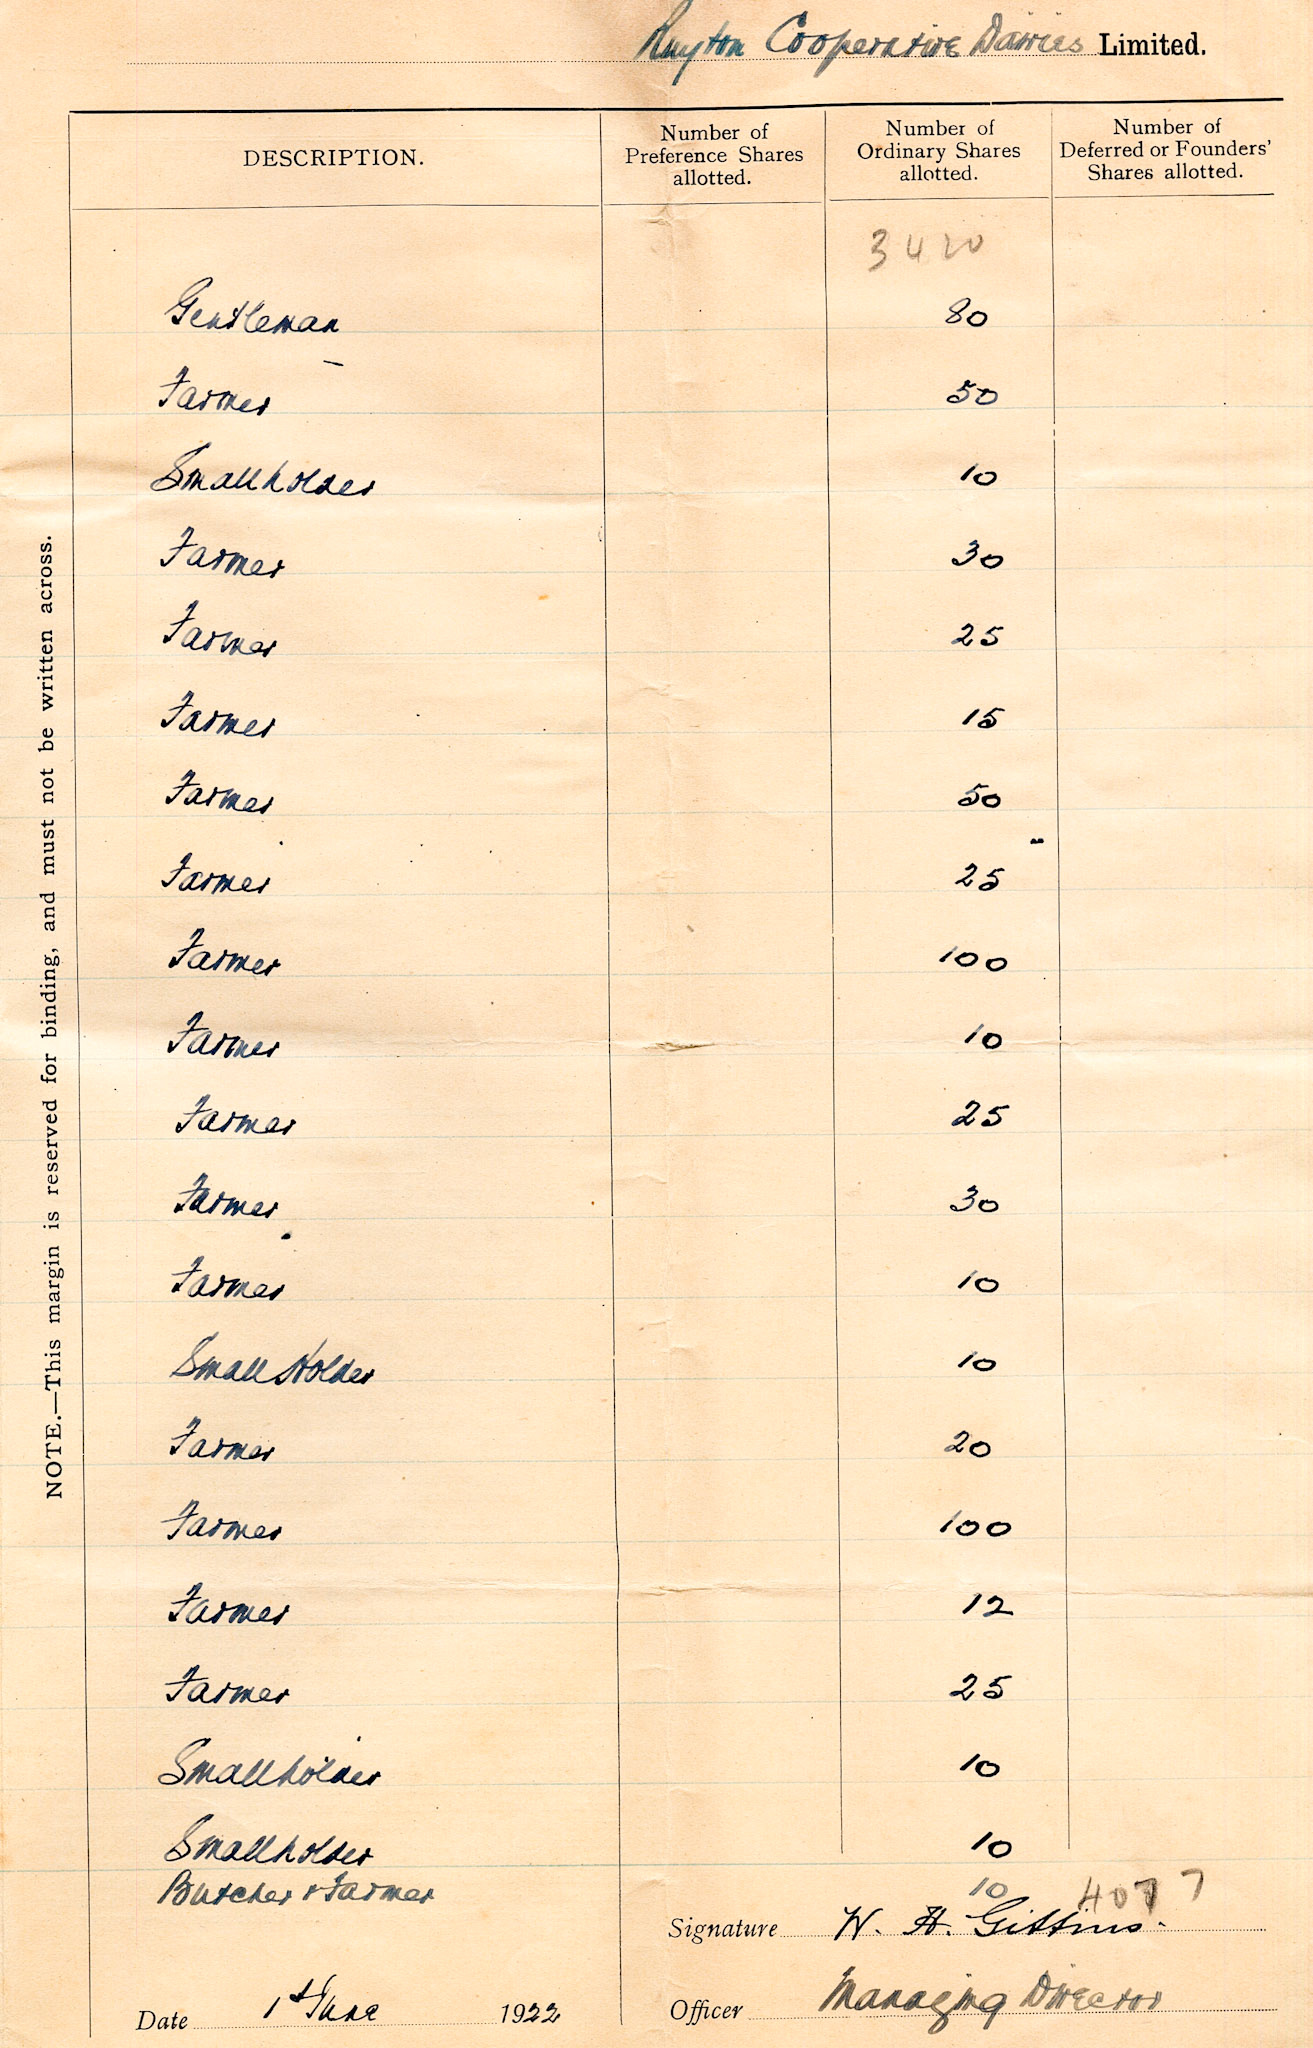 Ruyton Cooperative Dairies Limited.
DESCRIPTION.
Number of
Preference Shares
allotted.
Number of
Ordinary Shares
allotted.
Number of
Deferred or Founders'
Shares allotted.
3420
Gentleman 80
Farmer 50
Smallholder 10
Farmer 30
Farmer 25
Farmer 15
Farmer 50
Farmer 25
Farmer 100
Farmer 10
Farmer 25
Farmer 30
Farmer 10
Small Holder 10
Farmer 20
Farmer 100
Farmer 12
Farmer 25
Smallholder 10
Smallholder 10
Butcher & Farmer 10
4077
Signature W. H. Gittins.
Date 1st June 1922
Officer Managing Director
NOTE.—This margin is reserved for binding, and must not be written across.